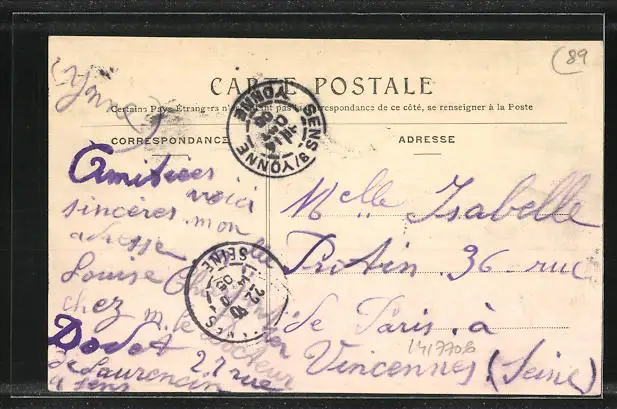 89
(Yonne)
CARTE POSTALE
Certains Pays Étrangers n' pas correspondance de ce côté, se renseigner à la Poste
CORRESPONDANCE
ADRESSE
SENS S/YONNE
YONNE
Amitiées
sincères voici
mon
adresse
Louise
chez m. le
Docteur
Dodet 27 rue
de Laurencin
a Sens
SEINE
Melle Isabelle
36 rue
de Paris. à
Vincennes (Seine)